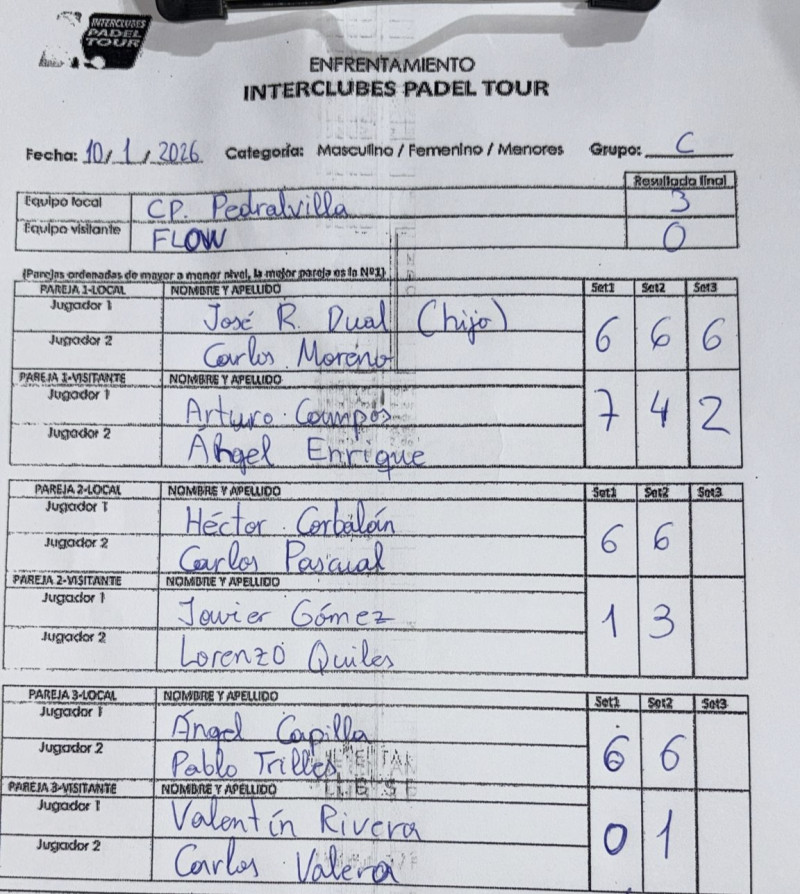 INTERCLUBES
PADEL
TOUR
ENFRENTAMIENTO
INTERCLUBES PADEL TOUR
Fecha: 10/1/2026 Categoría: Masculino / Femenino / Menores Grupo: C
Resultado final
Equipo local CP. Pedralvilla 3
Equipo visitante FLOW 0
(Parejas ordenadas de mayor a menor nivel, la mejor pareja es la Nº1)
PAREJA 1-LOCAL NOMBRE Y APELLIDO Set1 Set2 Set3
Jugador 1 José R. Dual (hijo)
Jugador 2 Carlos Moreno
6 6 6
PAREJA 1-VISITANTE NOMBRE Y APELLIDO
Jugador 1 Arturo Campos
Jugador 2 Ángel Enrique
7 4 2
PAREJA 2-LOCAL NOMBRE Y APELLIDO Set1 Set2 Set3
Jugador 1 Héctor Corbalán
Jugador 2 Carlos Pascual
6 6
PAREJA 2-VISITANTE NOMBRE Y APELLIDO
Jugador 1 Javier Gómez
Jugador 2 Lorenzo Quiles
1 3
PAREJA 3-LOCAL NOMBRE Y APELLIDO Set1 Set2 Set3
Jugador 1 Ángel Capilla
Jugador 2 Pablo Trilles
6 6
PAREJA 3-VISITANTE NOMBRE Y APELLIDO
Jugador 1 Valentín Rivera
Jugador 2 Carlos Valera
0 1